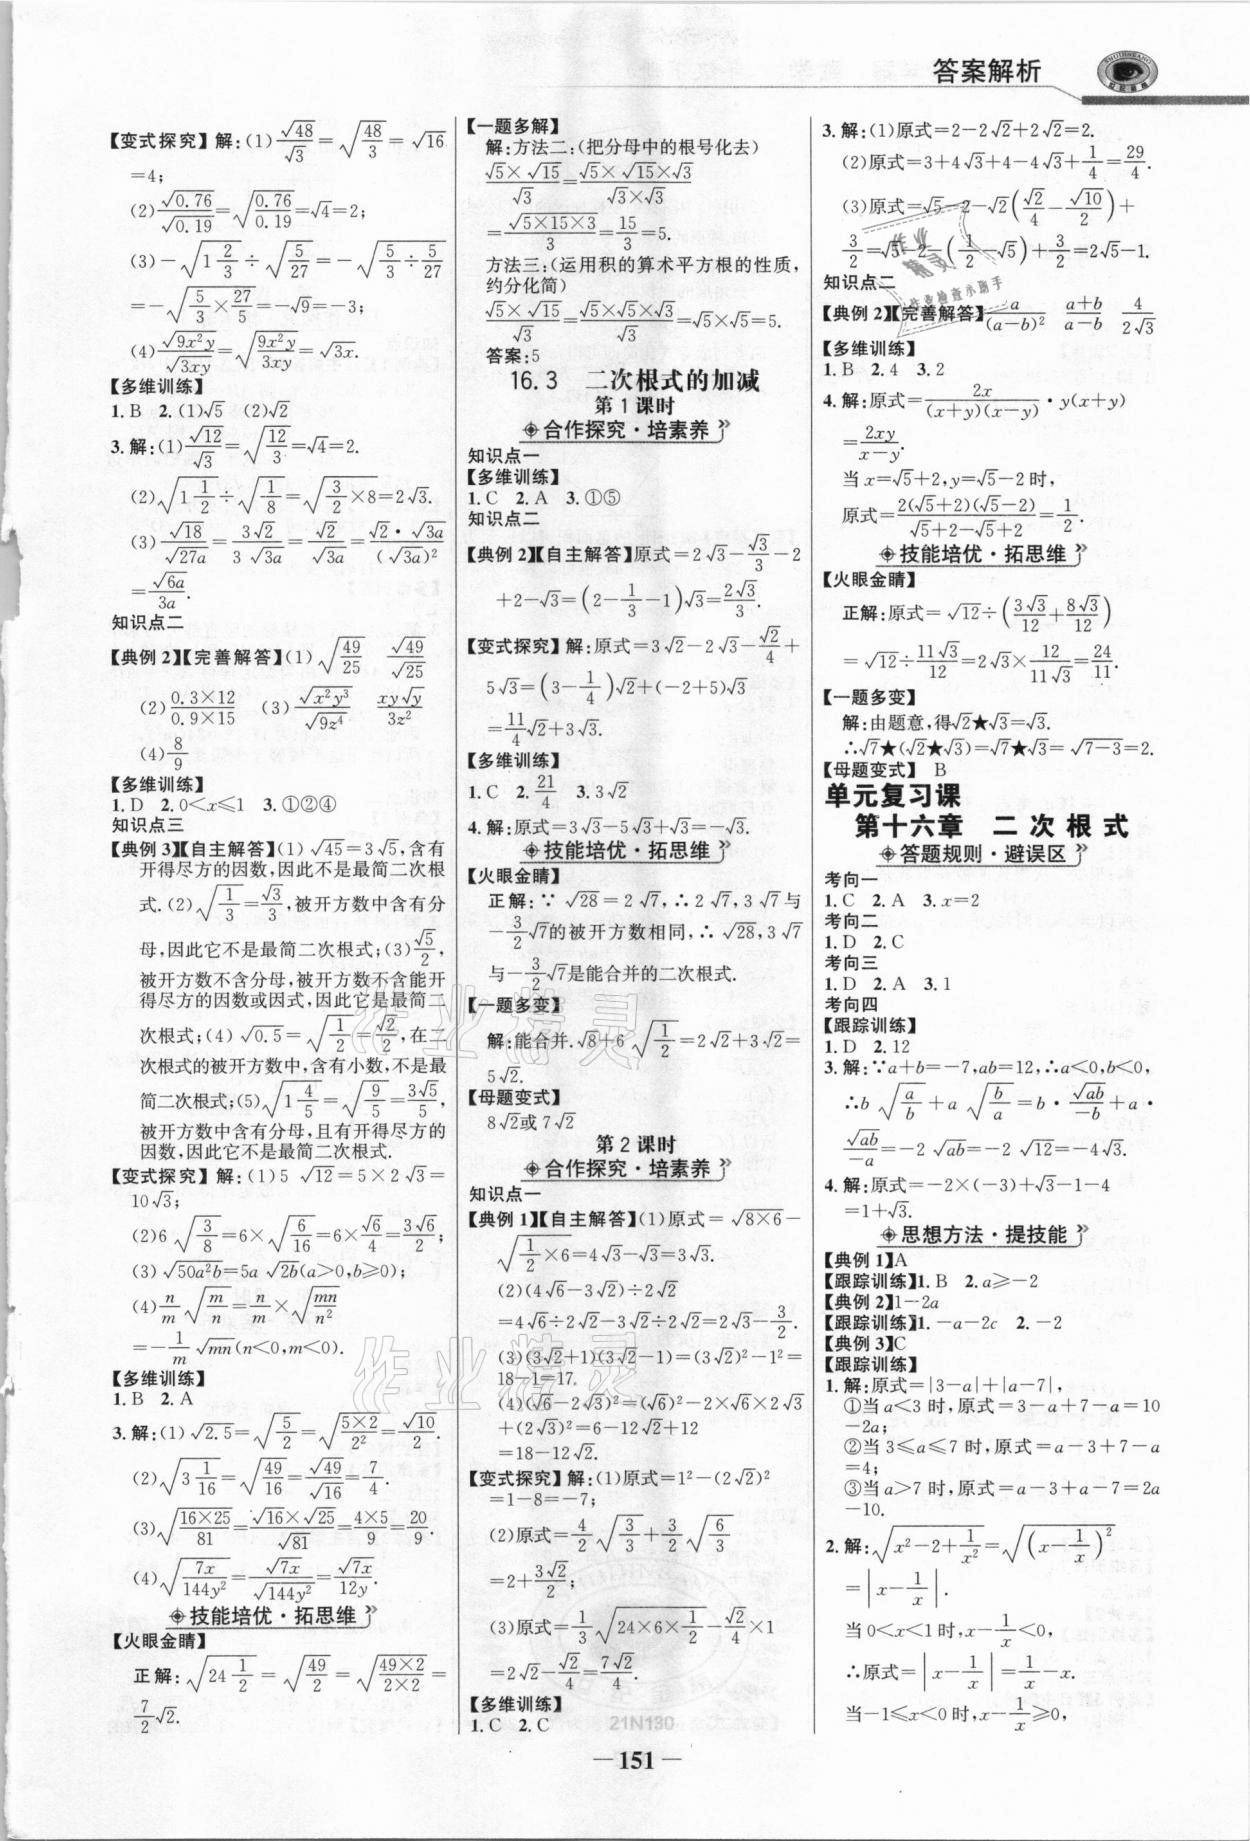 答案解析
【变式探究】解:(1)√48/√3=√(48/3)=√16
=4;
(2)√0.76/√0.19=√(0.76/0.19)=√4=2;
(3)-√(1 2/3)÷√(5/27)=-√(5/3÷5/27)
=-√(5/3×27/5)=-√9=-3;
(4)√(9x²y)/√(3xy)=√(9x²y/3xy)=√(3x).
【多维训练】
1.B 2.(1)√5 (2)√2
3.解:(1)√12/√3=√(12/3)=√4=2.
(2)√(1 1/2)÷√(1/8)=√(3/2×8)=2√3.
(3)√18/√(27a)=3√2/(3√(3a))=√2/√(3a)=√2·√(3a)/(√(3a))²
=√(6a)/3a.
知识点二
【典例2】【完善解答】(1)√(49/25) √49/√25
(2)(0.3×12)/(0.9×15) (3)√(x²y³)/√(9z⁴) xy√y/3z²
(4)8/9
【多维训练】
1.D 2.0<x≤1 3.①②④
知识点三
【典例3】【自主解答】(1)√45=3√5,含有
开得尽方的因数,因此不是最简二次根
式.(2)√(1/3)=√3/3,被开方数中含有分
母,因此它不是最简二次根式;(3)√5/2,
被开方数不含分母,被开方数不含能开
得尽方的因数或因式,因此它是最简二
次根式;(4)√0.5=√(1/2)=√2/2,在二
次根式的被开方数中,含有小数,不是最
简二次根式;(5)√(1 4/5)=√(9/5)=3√5/5,
被开方数中含有分母,且有开得尽方的
因数,因此它不是最简二次根式.
【变式探究】解:(1)5√12=5×2√3=
10√3;
(2)6√(3/8)=6×√(6/16)=6×√6/4=3√6/2;
(3)√(50a²b)=5a√(2b)(a>0,b≥0);
(4)n/m√(m/n)=n/m×√(mn/n²)
=-1/m√(mn)(n<0,m<0).
【多维训练】
1.B 2.A
3.解:(1)√2.5=√(5/2)=√(5×2/2²)=√10/2.
(2)√(3 1/16)=√(49/16)=√49/√16=7/4.
(3)√(16×25/81)=√16×√25/√81=4×5/9=20/9.
(4)√(7x/144y²)=√(7x)/√(144y²)=√(7x)/12y.
技能培优·拓思维
【火眼金睛】
正解:√(24 1/2)=√(49/2)=√(49×2/2×2)=
7/2√2.
【一题多解】
解:方法二:(把分母中的根号化去)
√5×√15/√3=√5×√15×√3/√3×√3
=√(5×15×3)/3=15/3=5.
方法三:(运用积的算术平方根的性质,
约分化简)
√5×√15/√3=√5×√5×√3/√3=√5×√5=5.
答案:5
16.3 二次根式的加减
第1课时
合作探究·培素养
知识点一
【多维训练】
1.C 2.A 3.①⑤
知识点二
【典例2】【自主解答】原式=2√3-√3/3-2
+2-√3=(2-1/3-1)√3=2√3/3.
【变式探究】解:原式=3√2-2√3-√2/4+
5√3=(3-1/4)√2+(-2+5)√3
=11/4√2+3√3.
【多维训练】
1.C 2.21/4 3.3√2
4.解:原式=3√3-5√3+√3=-√3.
技能培优·拓思维
【火眼金睛】
正解:∵√28=2√7,∴2√7,3√7与
-3/2√7的被开方数相同,∴√28,3√7
与-3/2√7是能合并的二次根式.
【一题多变】
解:能合并.√8+6√(1/2)=2√2+3√2=
5√2.
【母题变式】
8√2或7√2
第2课时
合作探究·培素养
知识点一
【典例1】【自主解答】(1)原式=√(8×6)-
√(1/2×6)=4√3-√3=3√3.
(2)(4√6-3√2)÷2√2
=4√6÷2√2-3√2÷2√2=2√3-3/2.
(3)(3√2+1)(3√2-1)=(3√2)²-1²=
18-1=17.
(4)(√6-2√3)²=(√6)²-2×√6×2√3
+(2√3)²=6-12√2+12
=18-12√2.
【变式探究】解:(1)原式=1²-(2√2)²
=1-8=-7;
(2)原式=4/2√(3/3)+3/2√(6/3)
=2+3√2/2;
(3)原式=1/3√(24×6×1/2)-√2/4×1
=2√2-√2/4=7√2/4.
【多维训练】
1.C 2.C
3.解:(1)原式=2-2√2+2√2=2.
(2)原式=3+4√3+4-4√3+1/4=29/4.
(3)原式=√5-2-√2(√2/4-√10/2)+
3/2=√5-2-(1/2-√5)+3/2=2√5-1.
知识点二
【典例2】【完善解答】a/(a-b)² a+b/a-b 4/2√3
【多维训练】
1.B 2.4 3.2
4.解:原式=2x/(x+y)(x-y)·y(x+y)
=2xy/x-y.
当x=√5+2,y=√5-2时,
原式=2(√5+2)(√5-2)/√5+2-√5+2=1/2.
技能培优·拓思维
【火眼金睛】
正解:原式=√12÷(3√3/12+8√3/12)
=√12÷11√3/12=2√3×12/11√3=24/11.
【一题多变】
解:由题意,得√2★√3=√3.
∴√7★(√2★√3)=√7★√3=√(7-3)=2.
【母题变式】 B
单元复习课
第十六章 二次根式
答题规则·避误区
考向一
1.C 2.A 3.x=2
考向二
1.D 2.C
考向三
1.D 2.A 3.1
考向四
【跟踪训练】
1.D 2.12
3.解:∵a+b=-7,ab=12,∴a<0,b<0,
∴b√(a/b)+a√(b/a)=b·√(ab)/-b+a·
√(ab)/-a=-2√(ab)=-2√12=-4√3.
4.解:原式=-2×(-3)+√3-1-4
=1+√3.
思想方法·提技能
【典例1】A
【跟踪训练】1.B 2.a≥-2
【典例2】1-2a
【跟踪训练】1.-a-2c 2.-2
【典例3】C
【跟踪训练】
1.解:原式=|3-a|+|a-7|,
①当a<3时,原式=3-a+7-a=10
-2a;
②当3≤a≤7时,原式=a-3+7-a
=4;
③当a>7时,原式=a-3+a-7=2a
-10.
2.解:√(x²-2+1/x²)=√((x-1/x)²)
=|x-1/x|.
当0<x<1时,x-1/x<0,
∴原式=|x-1/x|=1/x-x.
当-1≤x<0时,x-1/x≥0,
21N130
—151—
作业精灵
作业检查小助手
作业精灵
作业精灵